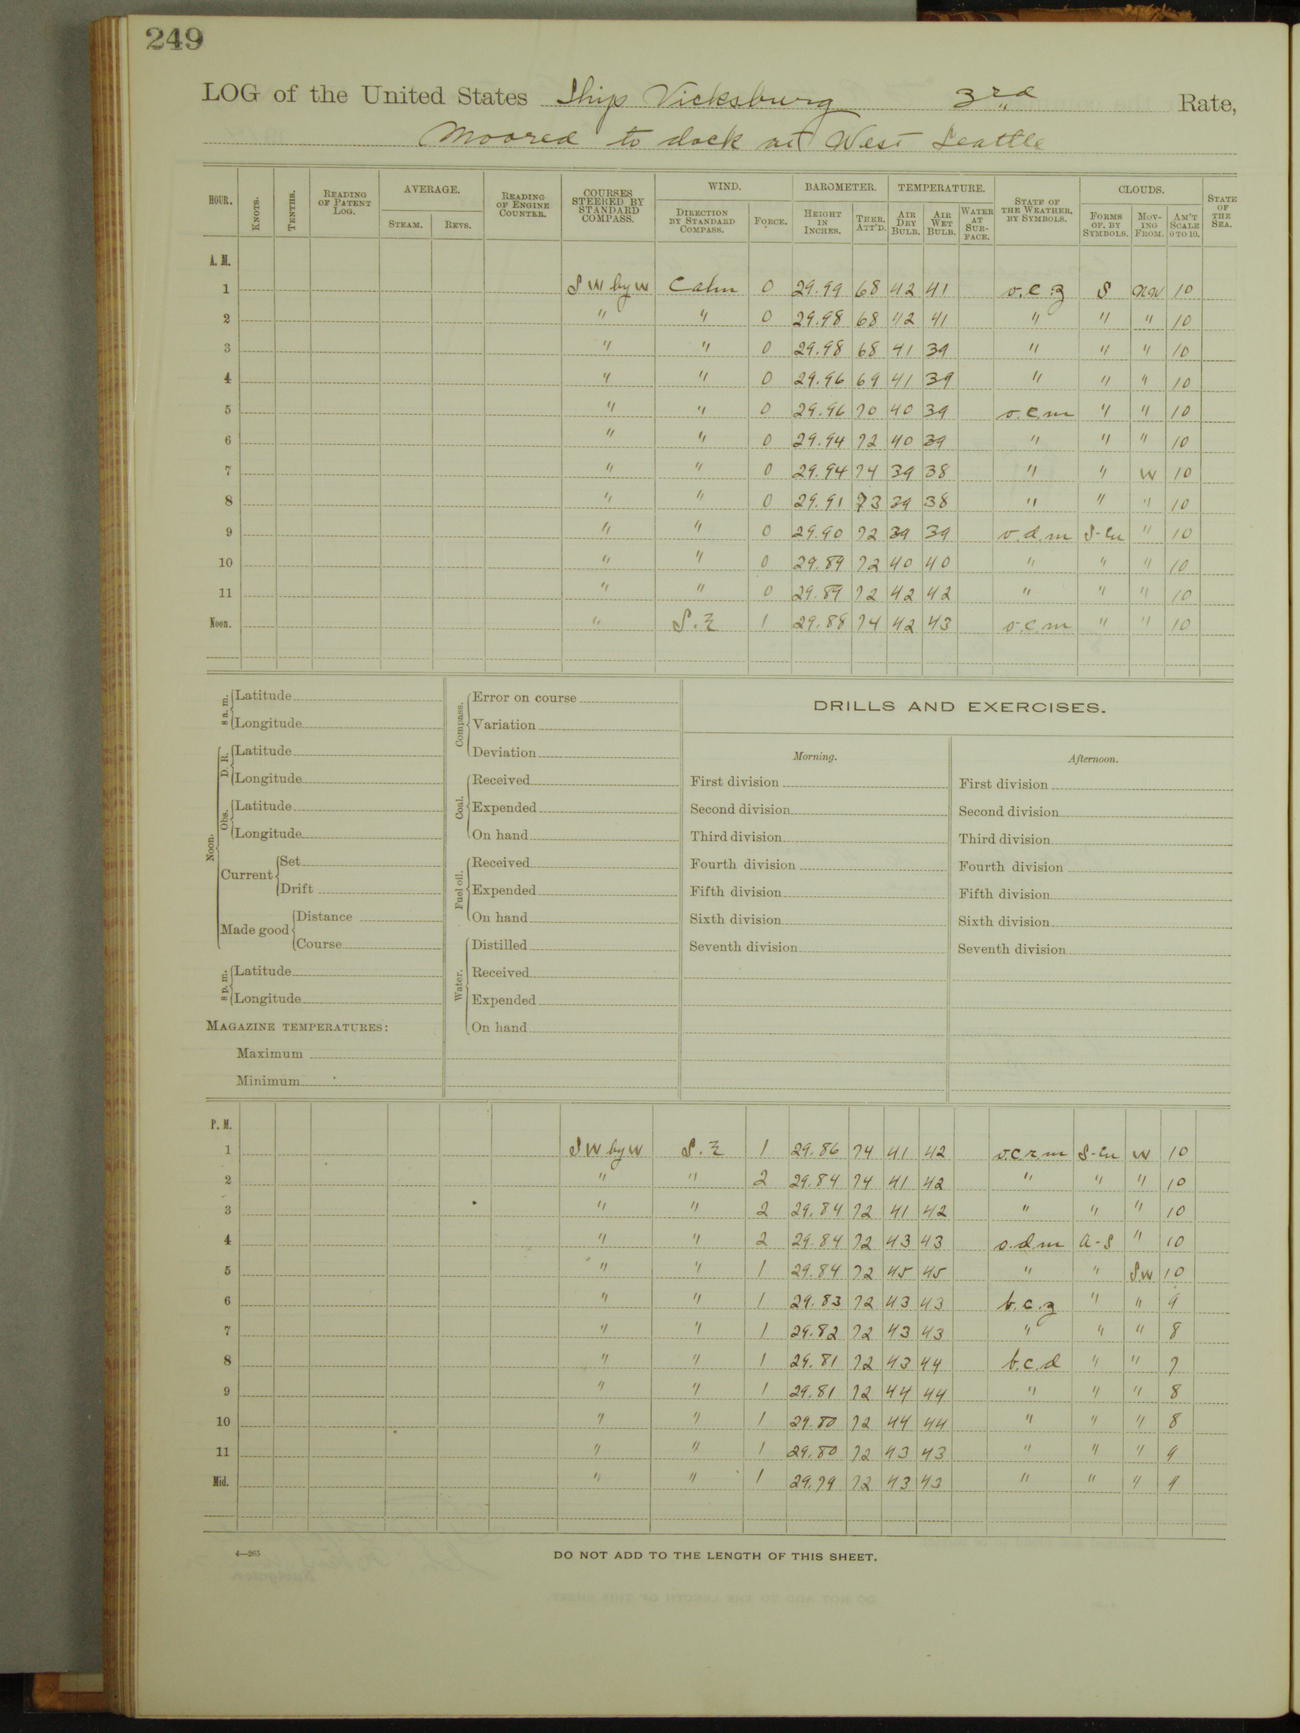 249
LOG of the United States Ship Vicksburg 3rd Rate,
Moored to dock at West Seattle
HOUR. KNOTS. TENTHS. READING OF PATENT LOG. AVERAGE. STEAM. REVS. READING OF ENGINE COUNTER. COURSES STEERED BY STANDARD COMPASS. WIND. DIRECTION BY STANDARD COMPASS. FORCE. BAROMETER. HEIGHT IN INCHES. THER. ATT'D. TEMPERATURE. AIR DRY BULB. AIR WET BULB. WATER AT SURFACE. STATE OF THE WEATHER, BY SYMBOLS. CLOUDS. FORMS OF, BY SYMBOLS. MOVING FROM. AM'T SCALE 0 TO 10. STATE OF THE SEA.
A. M.
1 SW by W Calm 0 29.99 68 42 41 o.c.z S NW 10
2 " " 0 29.98 68 42 41 " " " 10
3 " " 0 29.98 68 41 39 " " " 10
4 " " 0 29.96 69 41 39 " " " 10
5 " " 0 29.96 70 40 39 o.c.m " " 10
6 " " 0 29.94 72 40 39 " " " 10
7 " " 0 29.94 74 39 38 " " W 10
8 " " 0 29.91 73 39 38 " " " 10
9 " " 0 29.90 72 39 39 o.d.m S-cu " 10
10 " " 0 29.89 72 40 40 " " " 10
11 " " 0 29.89 72 42 42 " " " 10
Noon. " S.E 1 29.88 74 42 43 o.c.m " " 10
8 a. m. Latitude
Longitude
Noon. D. R. Latitude
Longitude
Obs. Latitude
Longitude
Current Set
Drift
Made good Distance
Course
8 p. m. Latitude
Longitude
MAGAZINE TEMPERATURES:
Maximum
Minimum
Compass. Error on course
Variation
Deviation
Coal. Received
Expended
On hand
Fuel oil. Received
Expended
On hand
Water. Distilled
Received
Expended
On hand
DRILLS AND EXERCISES.
Morning.
First division
Second division
Third division
Fourth division
Fifth division
Sixth division
Seventh division
Afternoon.
First division
Second division
Third division
Fourth division
Fifth division
Sixth division
Seventh division
P. M.
1 SW by W S.E 1 29.86 74 41 42 o.c.r.m S-cu W 10
2 " " 2 29.84 74 41 42 " " " 10
3 " " 2 29.84 72 41 42 " " " 10
4 " " 2 29.84 72 43 43 o.d.m A-S " 10
5 " " 1 29.84 72 45 45 " " SW 10
6 " " 1 29.83 72 43 43 b.c.z " " 9
7 " " 1 29.82 72 43 43 " " " 8
8 " " 1 29.81 72 43 44 b.c.d " " 7
9 " " 1 29.81 72 44 44 " " " 8
10 " " 1 29.80 72 44 44 " " " 8
11 " " 1 29.80 72 43 43 " " " 9
Mid. " " 1 29.79 72 43 43 " " " 9
4—265
DO NOT ADD TO THE LENGTH OF THIS SHEET.